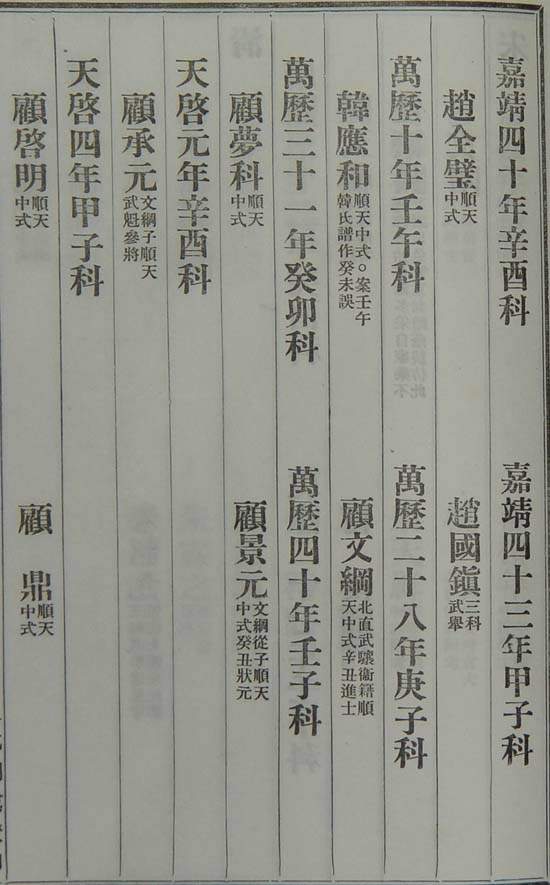 嘉靖四十年辛酉科　嘉靖四十三年甲子科
趙全璧順天中式　趙國鎮三科武舉
萬歷十年壬午科　萬歷二十八年庚子科
韓應和順天中式○案壬午韓氏譜作癸未誤　顧文綱北直武驤衞籍順天中式辛丑進士
萬歷三十一年癸卯科　萬歷四十年壬子科
顧夢科順天中式　顧景元文綱從子順天中式癸丑狀元
天啓元年辛酉科
顧承元文綱子順天武魁參將
天啓四年甲子科
顧啓明順天中式　顧鼎順天中式